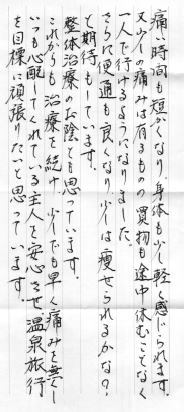 痛い時間も短かくなり、身体も少し軽く感じられます。
又少々の痛みは有るものの買物も途中休むことなく
一人で行けるようになりました。
さらに便通も良くなり少しは痩せられるかな？
と期待もしています。
整体治療のお陰とも思っています。
これからも治療を続け、少しでも早く痛みを無くし
いつも心配してくれている主人を安心させ温泉旅行
を目標に頑張りたいと思っています。